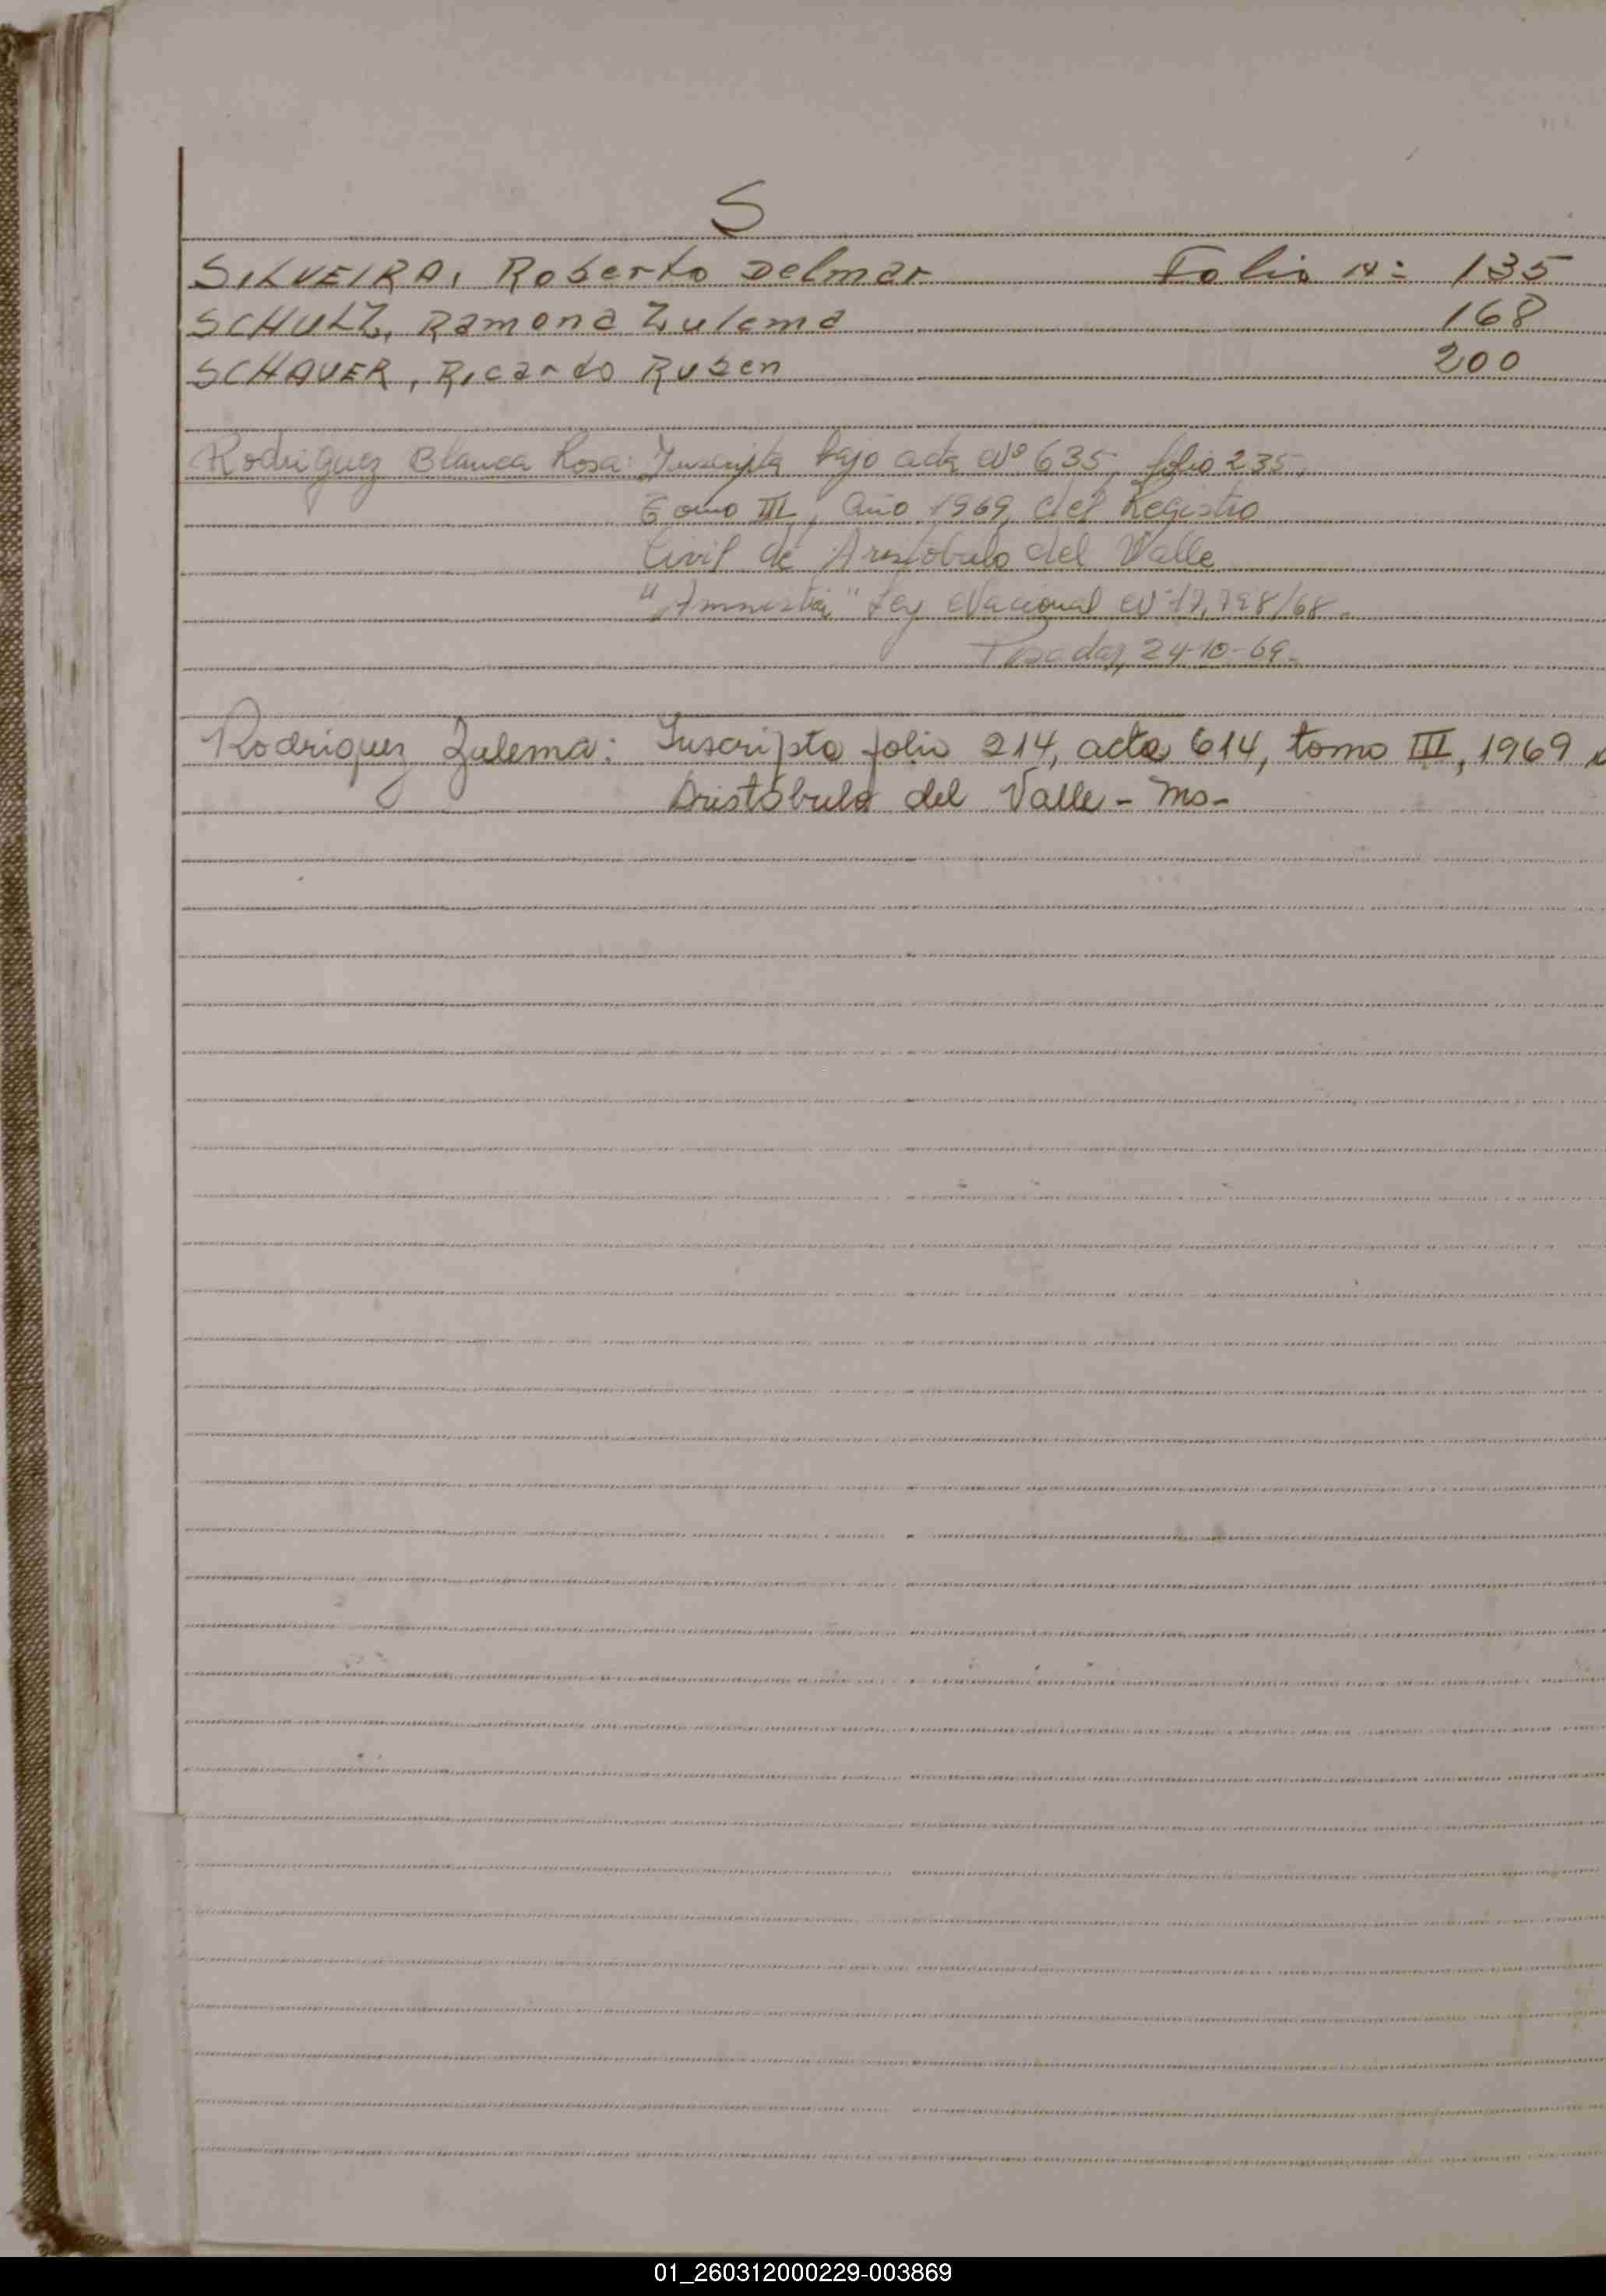 S
SILVEIRA, Roberto Delmar Folio N: 135
SCHULZ, Ramona Zulema 168
SCHAUER, Ricardo Ruben 200
Rodriguez Blanca Rosa: Inscripta bajo acta Nº 635, folio 235,
Tomo III, Año 1969, del Registro
Civil de Aristobulo del Valle
"Amnistia" Ley Nacional Nº 17.798/68.
Posadas, 24-10-69.
Rodriguez Zulema: Inscripta folio 214, acta 614, tomo III, 1969
Aristóbulo del Valle - Ms-
01_260312000229-003869